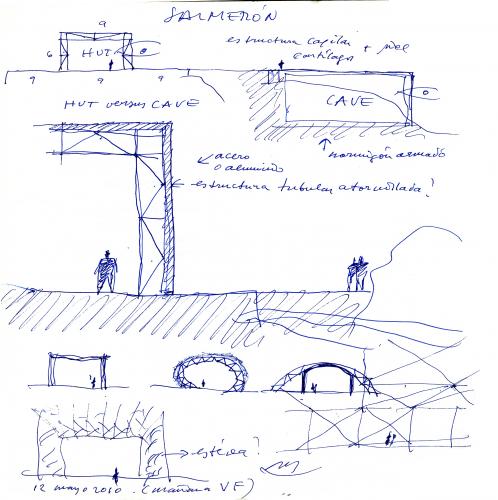 SALMERÓN
9
estructura capilar + piel
6 HUT
cartílago
9 9 9
CAVE
HUT versus CAVE
acero
o aluminio
hormigón armado
estructura tubular atornillada?
estérea?
12 mayo 2010. (mañana VF)